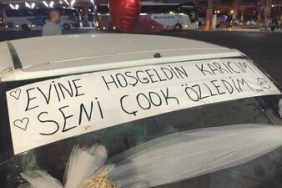 EVİNE HOŞGELDİN KARICIM
SENİ ÇOOK ÖZLEDİM...